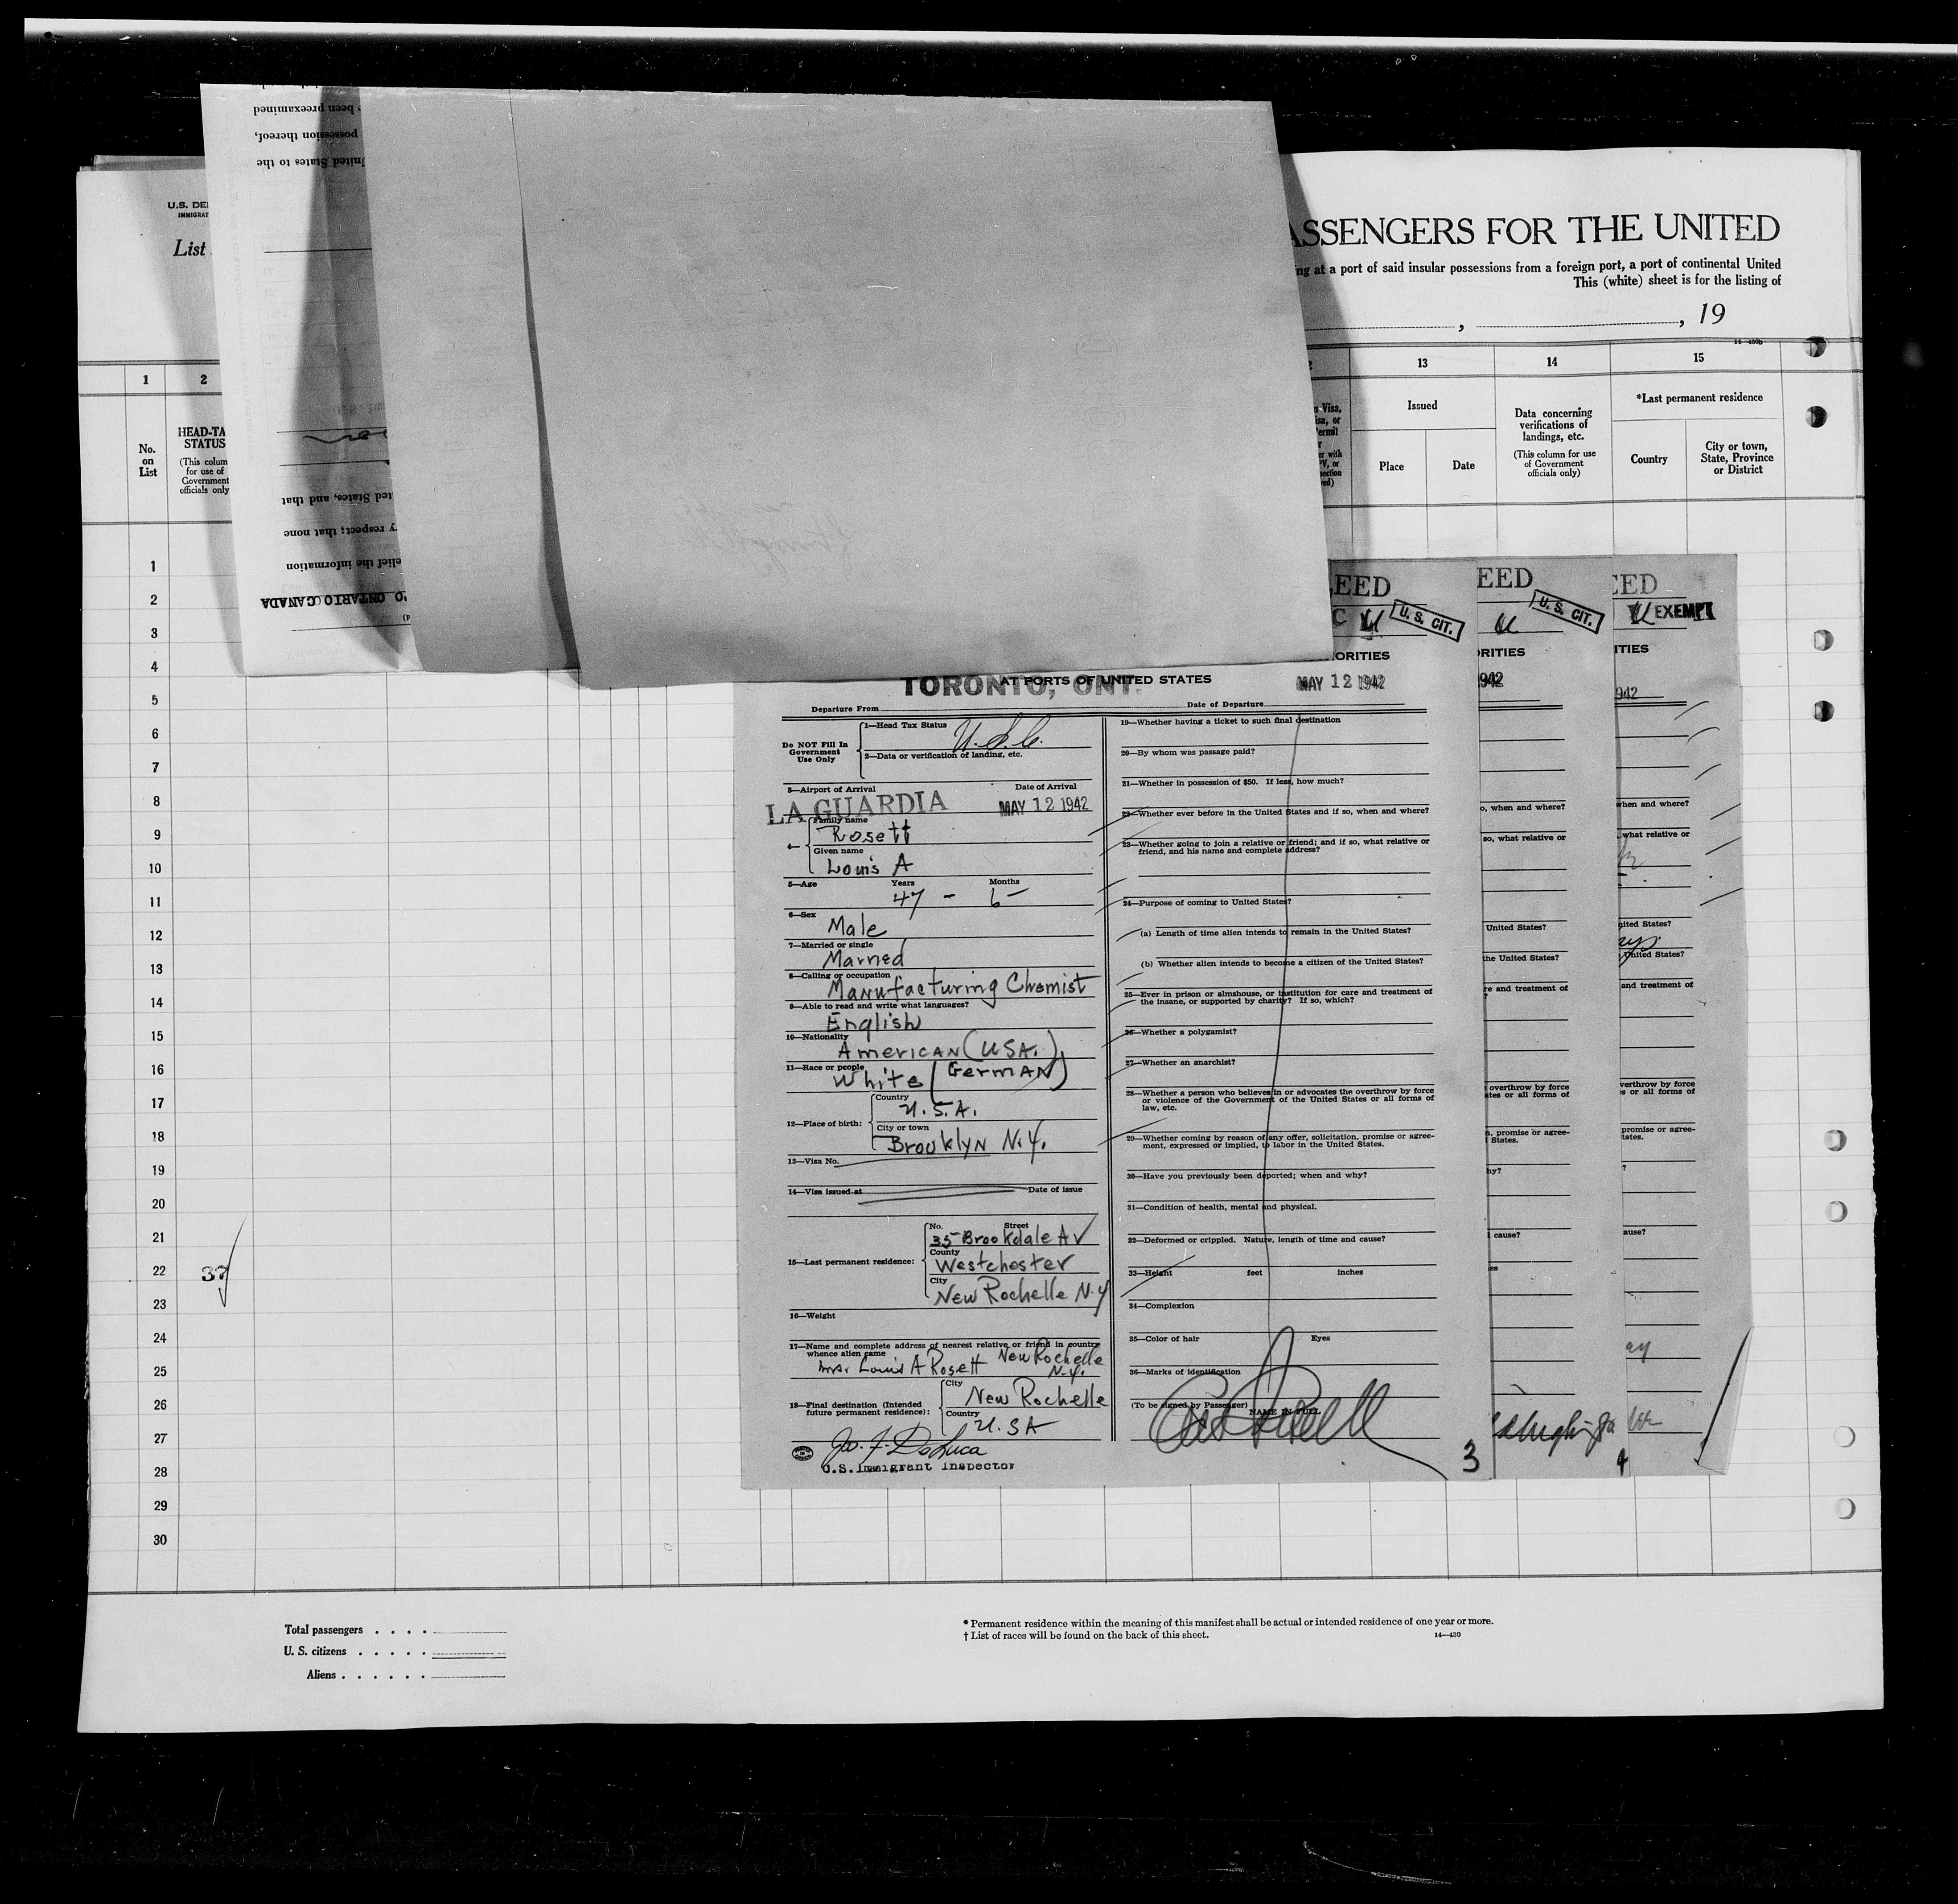 been preexamined
possession thereof,
United States to the
ted States, and that
y respect; that none
elief the information
O ONTARIO CANADA
U.S. DE
IMMIGRAT
List
ASSENGERS FOR THE UNITED
ng at a port of said insular possessions from a foreign port, a port of continental United
This (white) sheet is for the listing of
, , 19
14—430b
1 2 13 14 15
No.
on
List
HEAD-TA
STATUS
(This colum
for use of
Government
officials only
Visa,
isa, or
ermit
r
er with
V, or
ection
ed)
Issued
Place Date
Data concerning
verifications of
landings, etc.
(This column for use
of Government
officials only)
*Last permanent residence
Country
City or town,
State, Province
or District
1
2
3
4
5
6
7
8
9
10
11
12
13
14
15
16
17
18
19
20
21
22 37
23
24
25
26
27
28
29
30
EED
C U.S. CIT.
ORITIES
TORONTO, ONT.
AT PORTS OF UNITED STATES MAY 12 1942
Departure From Date of Departure
Do NOT Fill In
Government
Use Only
1—Head Tax Status U.S.C.
2—Data or verification of landing, etc.
3—Airport of Arrival Date of Arrival
LA GUARDIA MAY 12 1942
4— Family name
Rosett
Given name
Louis A
5—Age Years Months
47 - 6
6—Sex
Male
7—Married or single
Married
8—Calling or occupation
Manufacturing Chemist
9—Able to read and write what languages?
English
10—Nationality
American (USA.)
11—Race or people
White (German)
12—Place of birth: Country
U.S.A.
City or town
Brooklyn N.Y.
13—Visa No.
14—Visa issued at Date of issue
15—Last permanent residence: No. Street
35 Brookdale Av
County
Westchester
City
New Rochelle N.Y
16—Weight
17—Name and complete address of nearest relative or friend in country
whence alien came
Mrs. Louis A Rosett New Rochelle
N.Y.
18—Final destination (Intended
future permanent residence): City
New Rochelle
Country
U.S A
Jo. F. DeLuca
U.S.Immigrant Inspector
19—Whether having a ticket to such final destination
20—By whom was passage paid?
21—Whether in possession of $50. If less, how much?
22—Whether ever before in the United States and if so, when and where?
23—Whether going to join a relative or friend; and if so, what relative or
friend, and his name and complete address?
24—Purpose of coming to United States?
(a) Length of time alien intends to remain in the United States?
(b) Whether alien intends to become a citizen of the United States?
25—Ever in prison or almshouse, or institution for care and treatment of
the insane, or supported by charity? If so, which?
26—Whether a polygamist?
27—Whether an anarchist?
28—Whether a person who believes in or advocates the overthrow by force
or violence of the Government of the United States or all forms of
law, etc.
29—Whether coming by reason of any offer, solicitation, promise or agree-
ment, expressed or implied, to labor in the United States.
30—Have you previously been deported; when and why?
31—Condition of health, mental and physical.
32—Deformed or crippled. Nature, length of time and cause?
33—Height feet inches
34—Complexion
35—Color of hair Eyes
36—Marks of identification
(To be signed by Passenger) NAME IN FULL
3
EED
U.S. CIT.
ORITIES
1942
o, when and where?
so, what relative or
United States?
the United States?
re and treatment of
?
overthrow by force
ates or all forms of
n, promise or agree-
d States.
hy?
d cause?
es
4
EED
EXEMPT
ITIES
942
when and where?
what relative or
nited States?
ays.
United States?
and treatment of
verthrow by force
s or all forms of
promise or agree-
tates.
?
ause?
Total passengers . . . .
U. S. citizens . . . . .
Aliens . . . . . .
* Permanent residence within the meaning of this manifest shall be actual or intended residence of one year or more.
† List of races will be found on the back of this sheet. 14—430